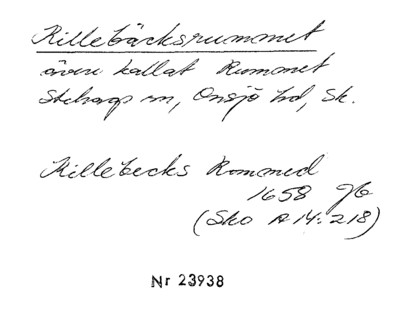 Killebäcksrummet
även kallat Rummet
Stehag sn, Onsjö hd, Sk.
Killebecks Rommed
1658 Jb
(Skå A 14:218)
Nr 23938